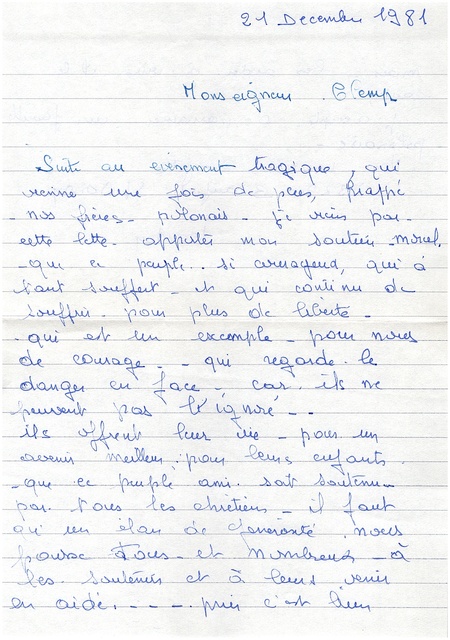 21 Decembre 1981
Monseigneur Glemp
Suite au evènement tragique, qui
vienne une fois de plus, frappé
- nos frères - polonais - je viens par -
cette lettre - apporter mon soutien - moral.
- que ce peuple .. si courageux, qui à
tant souffert - et qui continu de
souffrir - pour plus de liberté -
- qui est un exemple - pour nous
de courage - - qui regarde le
danger en face - car ils ne
peuvent pas l'ignoré - -
ils offrent leur vie - pour un
avenir meilleur, pour leurs enfants.
- que ce peuple ami. soit soutenu -
par tous les chrétiens - il faut
qu'un élan de générosité nous
pousse tous - et nombreux - à
les soutenir et à leurs venir
en aide. - - - - puis c'est bien